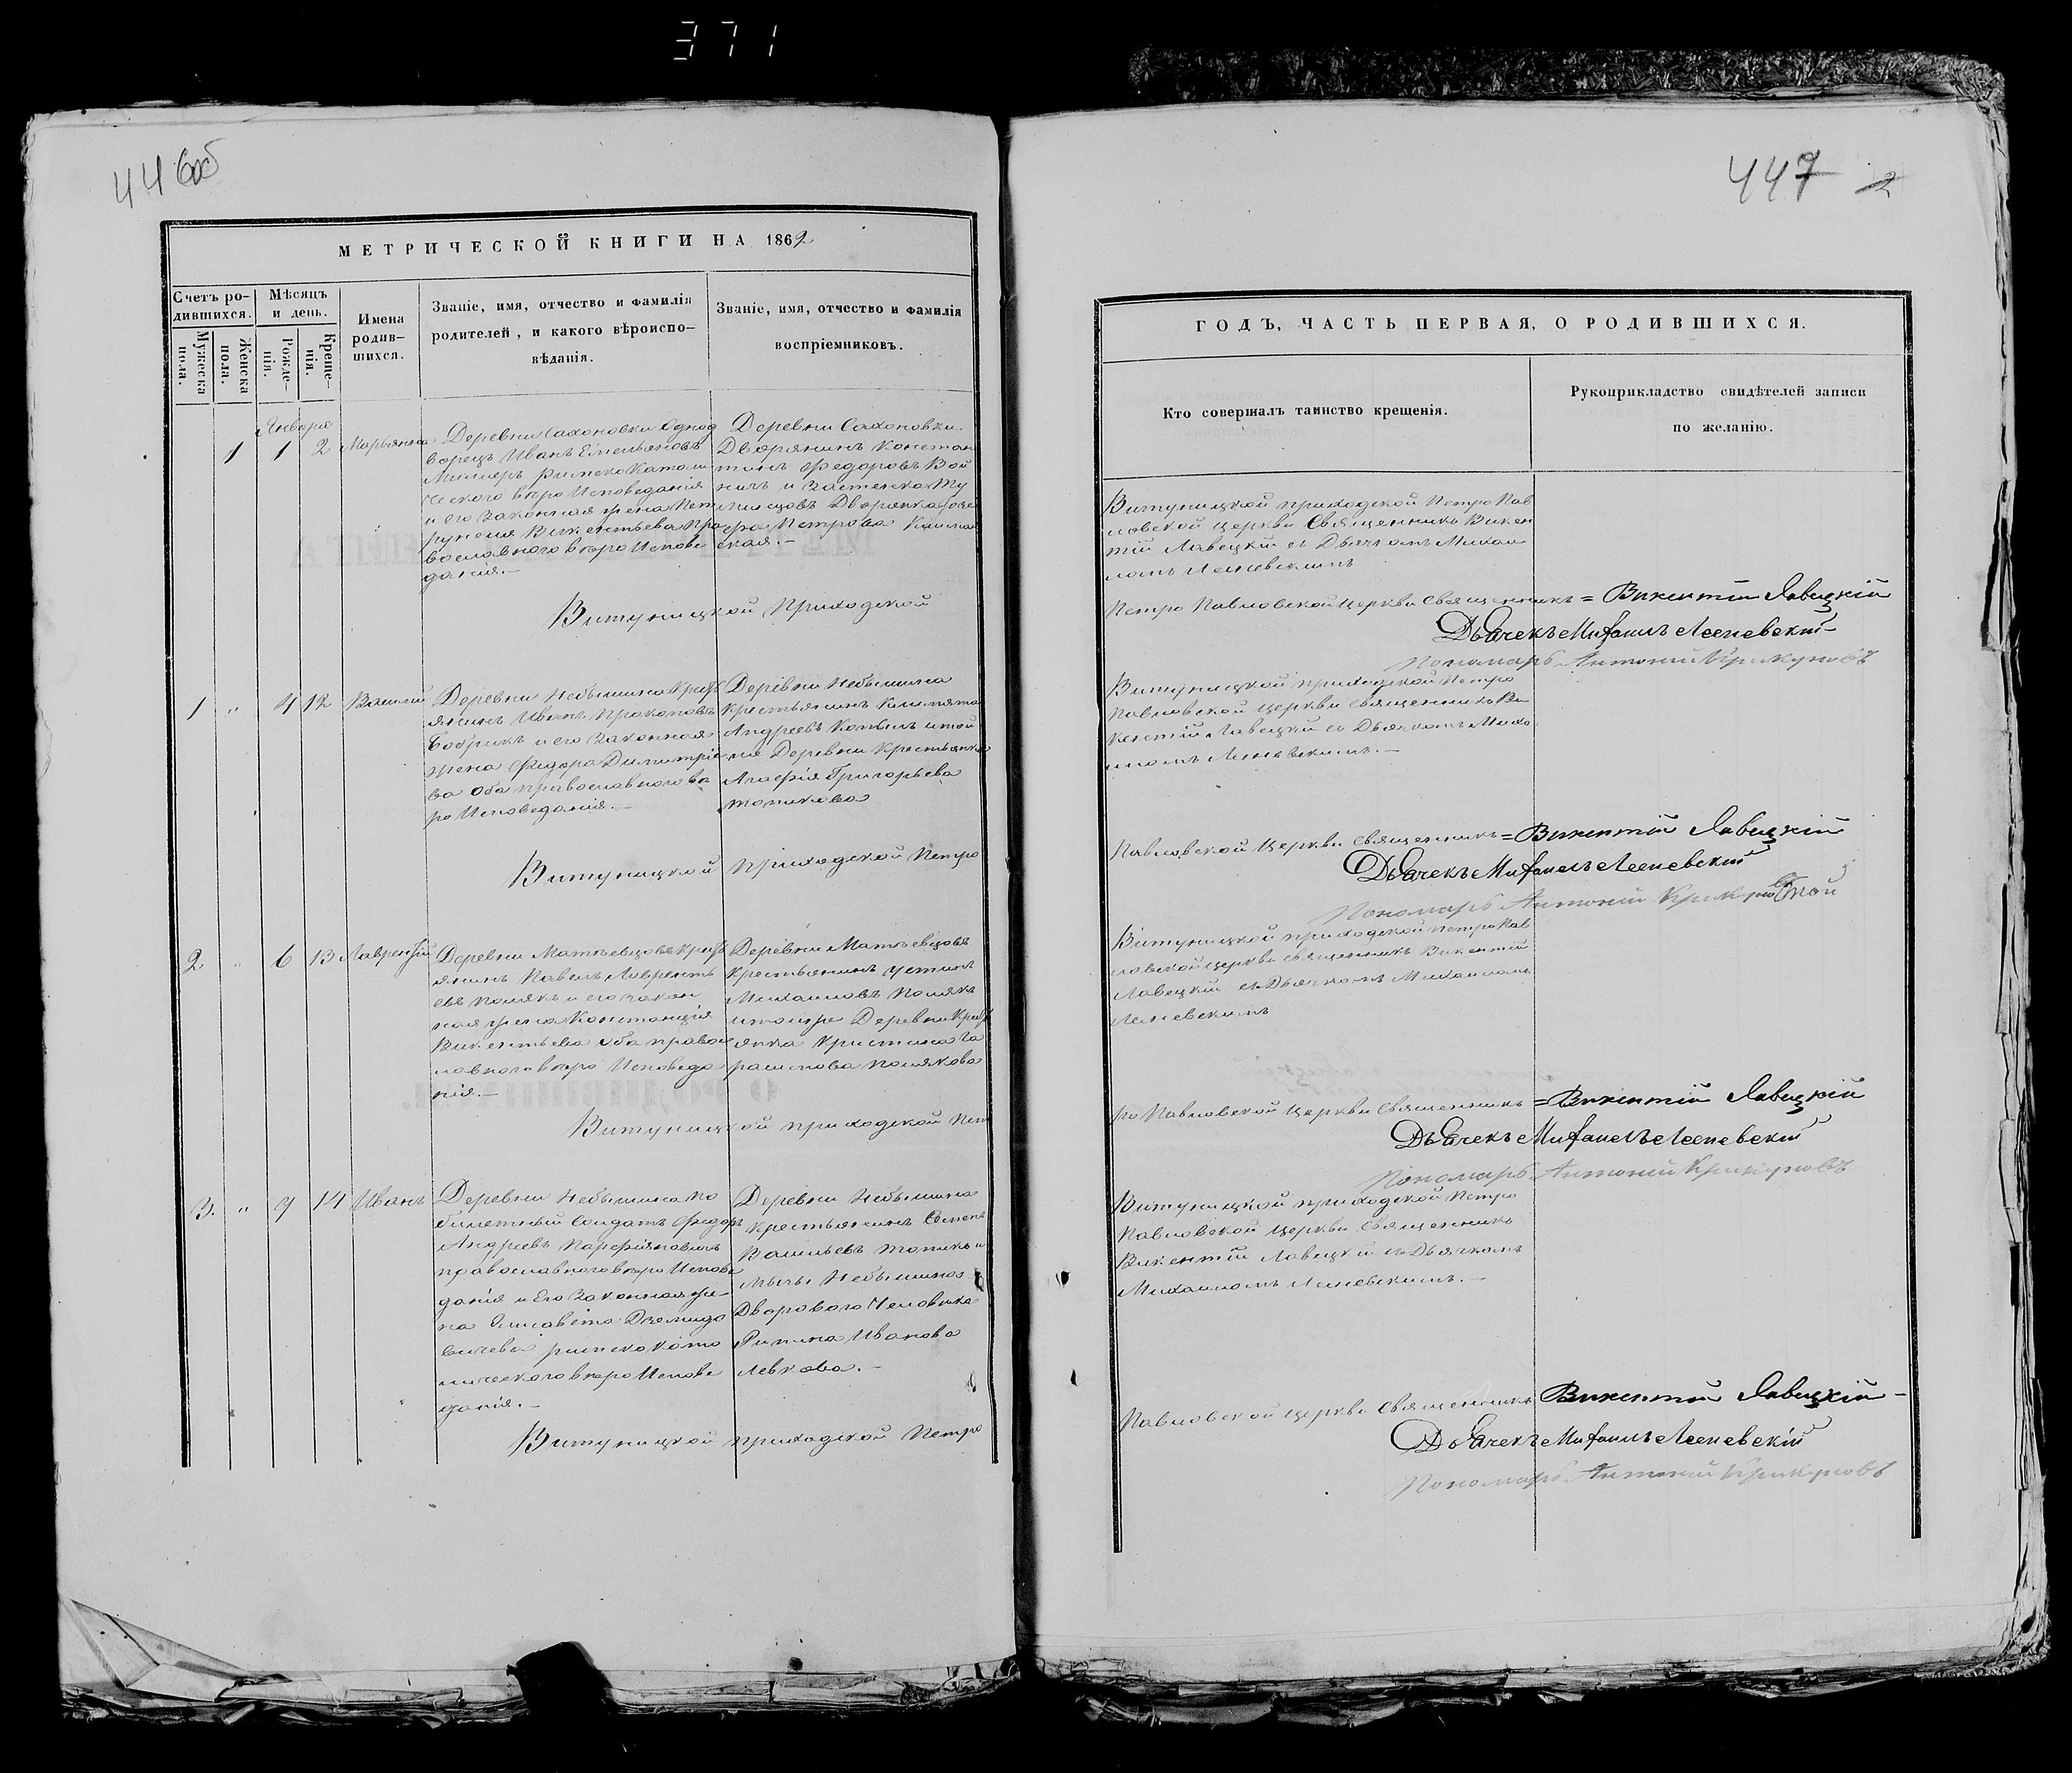 371
446об
МЕТРИЧЕСКОЙ КНИГИ НА 1862
Счетъ ро-
дившихся.
Мужеска
пола.
Женска
пола.
Мѣсяцъ
и день.
Рожде-
нія.
Креще-
нія.
Имена
родив-
шихся.
Званіе, имя, отчество и фамилія
родителей, и какого вѣроиспо-
вѣданія.
Званіе, имя, отчество и фамилія
воспріемниковъ.
Января
1 1 2 Марьянна
Деревни Сахоновки Однод
ворецъ Иванъ Емельяновъ
Миллеръ Римско Католи
ческого вѣро Исповеданія
и его законная жена Пет
рунеля Викентьева Пра
вославного вѣро Испове
данія.—
Деревни Сахоновки
Дворянинъ Констан
тинъ Федоровъ Вой
ничъ и Застенка Ту
Дворянка
Петрова
ская.—
Витуницкой Приходской
1 „ 4 12 Василій
Деревни Небышина Крест
янинъ Иванъ Прокоповъ
Бобрикъ и его Законная
жена Федора Димитріе
ва Оба православного вѣ
ро Исповеданія.—
Деревни Небышина
Крестьянинъ
Андреевъ
Деревни Крестьянка
Агафія Григорьева
Витуницкой приходской Петро
2 „ 6 13 Лаврентій
Деревни Матвѣевцовъ Крест
янинъ Павелъ Лаврентъ
евъ Полякъ и его закон
ная жена Констанція
Викентьева оба правос
лавного вѣро Исповеда
нія.—
Деревни Матвѣевцовъ
Крестьянинъ Устинъ
Михаиловъ Полякъ
и тойже Деревни Крест
янка Кристина Га
расимова Полякова
Витуницкой приходской Пет
3. „ 9 14 Иванъ
Деревни Небышина по
билетный Солдатъ Федоръ
Андреевъ Парфіяновичъ
православного вѣро Испове
данія и Его Законная же
на Елисавета
римско като
лического вѣро Испове
данія.—
Деревни Небышина
Крестьянинъ Семенъ
Васильевъ
Небышина
Дворового Человѣка
Ивановa
Левкова.—
Витуницкой приходской Петро
447 2
ГОДЪ, ЧАСТЬ ПЕРВАЯ, О РОДИВШИХСЯ.
Кто совершалъ таинство крещенія.
Рукоприкладство свидѣтелей записи
по желанію.
Витуницкой приходской Петро Пав
ловской церкви Священникъ Викен
тій Лавецкій съ Дьячкомъ Михаи
ломъ Лесневскимъ
Петро Павловской Церкви Священникъ = Викентій Лавецкій
Дьячекъ Михаилъ Лесневскій
Пономарь Антоній Крикуновъ
Витуницкой приходской Петро
Павловской Церкви Священникъ Ви
кентій Лавецкій съ Дьячкомъ Миха
иломъ Лесневскимъ.—
Павловской Церкви Священникъ = Викентій Лавецкій
Дьячекъ Михаилъ Лесневскій
Пономарь Антоній
Витуницкой приходской Петро Пав
ловской Церкви Священникъ Викентій
Лавецкій съ Дьячкомъ Михаиломъ
Лесневскимъ
ро Павловской Церкви Священникъ = Викентій Лавецкій
Дьячекъ Михаилъ Лесневскій
Пономарь Антоній Крикуновъ
Витуницкой приходской Петро
Павловской Церкви Священникъ
Викентій Лавецкій съ Дьячкомъ
Михаиломъ Лесневскимъ.—
Павловской Церкви Священникъ Викентій Лавецкій
Дьячекъ Михаилъ Лесневскій
Пономарь Антоній Крикуновъ